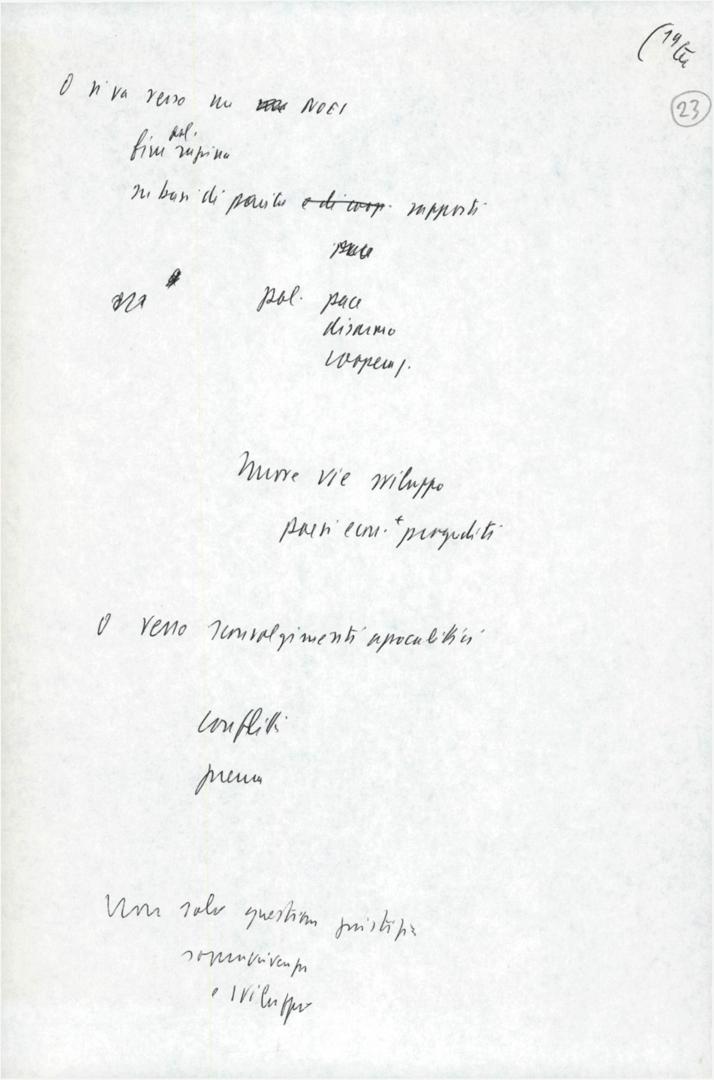 23
O si va verso un NOEI
pol.
fine rapina
su basi di parità e di coop. rapporti
pace
pol. pace
disarmo
cooperaz.
Nuove vie sviluppo
paesi econ. + progrediti
O verso sconvolgimenti apocalittici
conflitti
guerra
Non solo questione giustizia
sopravvivenza
e sviluppo